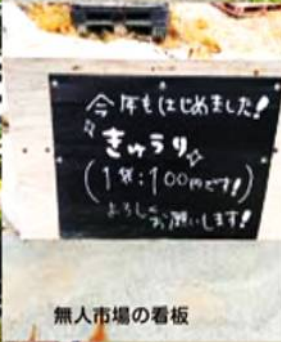 今年もはじめました!
きゅうり
(1袋:100円です!)
よろしくお願いします!
無人市場の看板